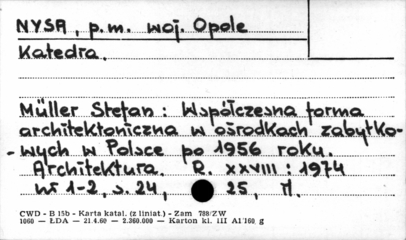 NYSA, p.m. woj. Opole
Katedra.
Müller Stefan: Współczesna forma
architektoniczna w ośrodkach zabytko-
-wych w Polsce po 1956 roku.
Architektura. R. XXVIII: 1974
nr 1-2, s. 24, 25, il.
CWD - B 15b - Karta katal. (z liniat.) - Zam 788/ZW
1060 — ŁDA — 21.4.60 — 2.360.000 — Karton kl. III A1 160 g